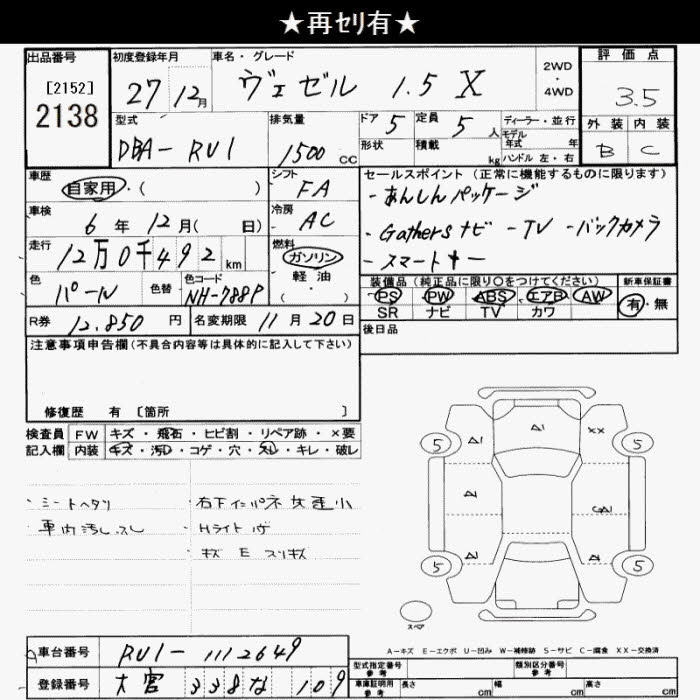 ★再ｾﾘ有★
出品番号
[2152]
2138
初度登録年月
27 12月
車名・グレード
ヴェゼル 1.5 X
2WD
・
4WD
評価点
3.5
外装 内装
B C
型式
DBA- RU1
排気量
1500 CC
ドア 5
形状
定員 5 人
積載 kg
ディーラー・並行
モデル
年式 年
ハンドル 左・右
車歴
自家用・( )
シフト
FA
車検
6 年 12 月( 日)
冷房
AC
走行
12万0千492 km
燃料
ガソリン
軽油
( )
色
パール
色替
色コード
NH-788P
セールスポイント (正常に機能するものに限ります)
・あんしんパッケージ
・Gathersナビ -TV -バックカメラ
・スマートキー
装備品 (純正品に限り○をつけてください)
PS PW ABS エアB AW
SR ナビ TV カワ
新車保証書
有・無
後日品
R券 12,850 円
名変期限 11月 20日
注意事項申告欄(不具合内容等は具体的に記入して下さい)
修復歴 有 [箇所 ]
検査員
記入欄
FW キズ・飛石・ヒビ割・リペア跡・×要
内装 キズ・汚れ・コゲ・穴・スレ・キレ・破レ
・シートヘタリ
・車内汚レ、スレ
・右下インパネ
・Hライト
・キズ E スリキズ
5 5
A1 A1 XX
A1
A1 A1
5 5
スペア
A-キズ E-エクボ U-凹み W-補修跡 S-サビ C-腐食 XX-交換済
車台番号
RU1- 1112649
登録番号
大宮 338 な 109
型式指定番号
参考
類別区分番号
参考
車庫証明用
参考
長さ cm 幅 cm 高さ cm